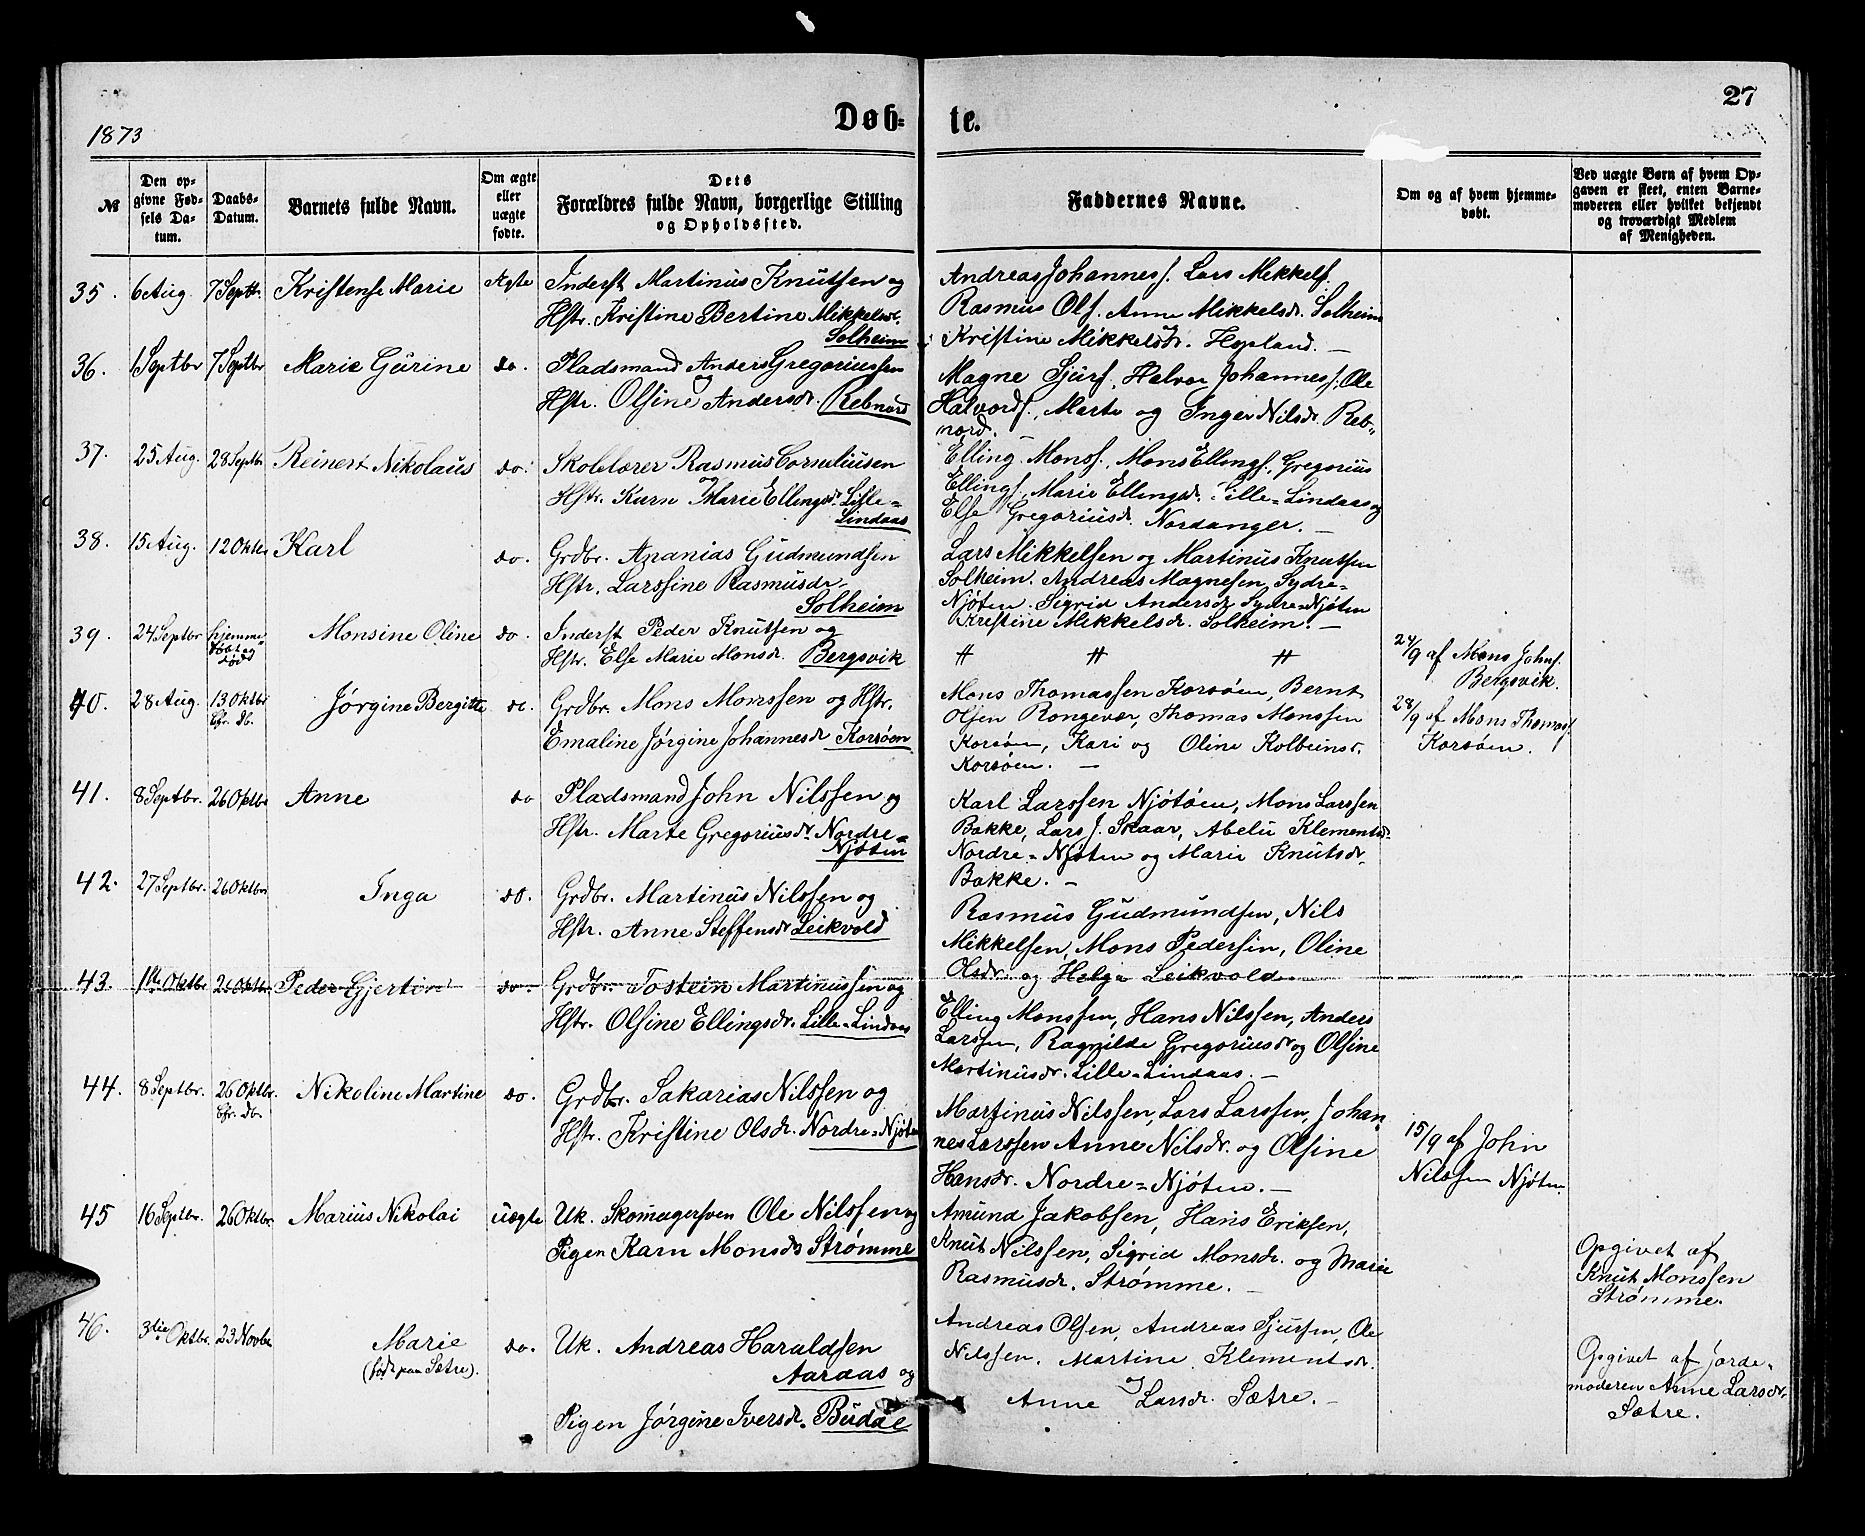 27
1873
Døb- te.
№
Den opgivne Fødsels Datum.
Daabs-Datum.
Barnets fulde Navn.
Om ægte eller uægte fødte.
Dets Forældres fulde Navn, borgerlige Stilling og Opholdssted.
Faddernes Navne.
Om og af hvem hjemmedøbt.
Ved uægte Børn af hvem Opgaven er skeet, enten Barnemoderen eller hvilket bekjendt og troværdigt Medlem af Menigheden.
35. 6 Aug. 7 Septr. Kristense Marie Ægte Inderst Martinus Knutsen og
Hstr. Kristine Bertine Mikkelsd.
Solheim
Andreas Johannesf. Lars Mikkelf.
Rasmus Olf. Anne Mikkelsdr. Solheim
Kristine Mikkelsdr. Hopland. —
36. 1 Septbr 7 Septbr Marie Gurine do. Pladsmand Anders Gregoriussen
og
Hstr. Olsine Andersdr. Rebnord
Magne Sjurf. Halvor Johannesf. Ole
Halvordf. Marte og Inger Nilsdr. Reb-
nord.
37. 25 Aug. 28 Septbr Reinert Nikolaus do. Skolelærer Rasmus Corneliusen
og
Hstr. Karn Marie Ellingsdr. Lille-
Lindaas
Elling Monsf. Mons Ellingf. Gregorius
Ellingf. Marie Ellingsdr. Lille-Lindaas og
Else Gregoriusdr. Nordanger. —
38. 15 Aug. 12 Oktbr Karl do. Grdbr. Ananias Gudmundsen
Hstr. Larssine Rasmusdr.
Solheim
Lars Mikkelsen og Martinus Knutsen
Solheim. Andreas Magnesen, Sydre-
Njøten. Sigrid Andersdr Sydre-Njøten
Kristine Mikkelsdr. Solheim. —
39. 24 Septbr hjemme-
døbt og
død
Monsine Oline do. Inderst Peder Knutsen og
Hstr. Else Marie Monsdr. Bergsvik
〃 〃 〃
24/9 af Mons Johnf.
Bergsvik.
40. 28 Aug. 13 Oktbr
Efr. Db.
Jørgine Bergitte do. Grdbr. Mons Monssen og Hstr.
Emaline Jørgine Johannesdr Korsøen
Mons Thomassen Korsøen, Bernt
Olsen Rongevær, Thomas Monssen
Korsøen, Kari og Oline Kolbeinsdr.
Korsøen. —
28/9 af Mons Thomasf.
Korsøen.
41. 8 Septbr. 26 Oktbr Anne do Pladsmand John Nilssen og
Hstr. Marte Gregoriusdr. Nordre-
Njøten
Karl Larssen Njøtøen, Mons Larssen
Bakke, Lars J. Skaar, Abelu Klementsdr.
Nordre-Njøten og Marie Knutsdr.
Bakke. —
42. 27 Septbr. 26 Oktbr Inga do. Grdbr. Martinus Nilssen og
Hstr. Anne Steffensdr Leikvold
Rasmus Gudmundsen, Nils
Mikkelsen, Mons Pedersen, Oline
Olsdr. og Helga Leikvold
43. 1ste Oktbr 26 Oktbr. Peder Gjertinn do. Grdbr. Tostein Martinussen og
Hstr. Olsine Ellingsdr. Lille-Lindaas
Elling Monssen, Hans Nilssen, Anders
Larssen, Ragnilde Gregoriusdr og Olsine
Martinusdr. Lille-Lindaas. —
44. 8 Septbr. 26 Oktbr.
Efr. Db.
Nikoline Martine do. Grdbr. Sakarias Nilssen og
Hstr. Kristine Olsdr. Nordre-Njøten
Martinus Nilssen, Lars Larssen, Johan-
nes Larssen Anne Nilsdr. og Olsine
Hansdr. Nordre-Njøten. —
15/9 af John
Nilssen Njøten
45 16 Septbr. 26 Oktbr. Marius Nikolai uægte Uk. Skomagersven Ole Nilssen og
Pigen Karn Monsdr Strømme
Amund Jakobsen, Hans Eriksen,
Knut Nilssen, Sigrid Monsdr. og Marie
Rasmusdr. Strømme. —
Opgivet af
Knut Monssen
Strømme.
46. 3die Oktbr. 23 Novbr Marie
(født paa Sætre).
do. Uk. Andreas Haraldsen
Aaraas og
Pigen Jørgine Iversdr. Budal
Andreas Olsen, Andreas Sjursen, Ole
Nilssen. Martine Klementsdr.
og
Anne Larsdr. Sætre. —
Opgivet af Jorde-
moderen Anne Larsdr.
Sætre.